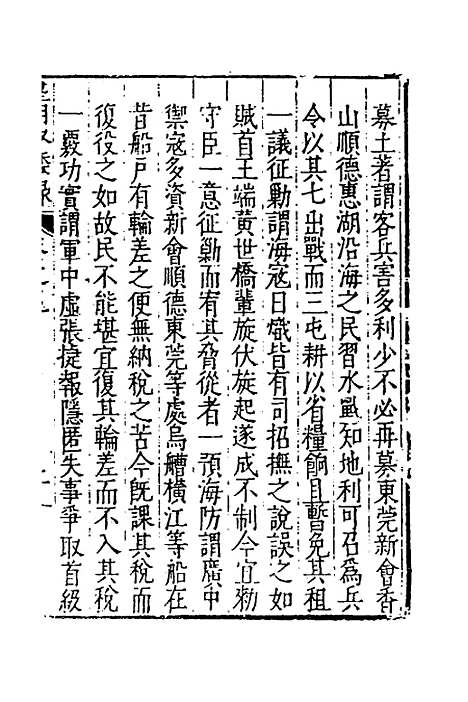 募土著謂客兵害多利少不必再募東莞新會香
山順德惠湖沿海之民習水戰知地利可召爲兵
令以其七出戰而三屯耕以省糧餉且暫免其租
一議征勦謂海寇日熾皆有司招撫之說誤之如
賊首王端黃世橋輩旋伏旋起遂成不制今宜勑
守臣一意征勦而宥其脅從者一預海防謂廣中
禦寇多資新會順德東莞等處烏艚橫江等船在
昔船戶有輪差之便無納稅之苦今旣課其稅而
復役之如故民不能堪宜復其輪差而不入其稅
一覈功實謂軍中虛張捷報隱匿失事爭取首級